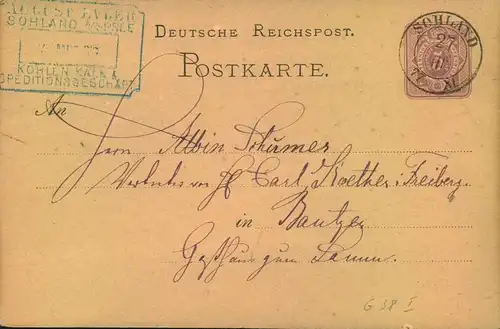 AUGUST EULER
SOHLAND a/SPREE
KOHLEN KALK &
SPEDITIONSGESCHÄFT
DEUTSCHE REICHSPOST.
POSTKARTE.
SOHLAND
An
Herrn Albin Schirmer
Carl Koether i/Freiberg
in Bautzen
Gasthaus zum Lamm.
G 38 I